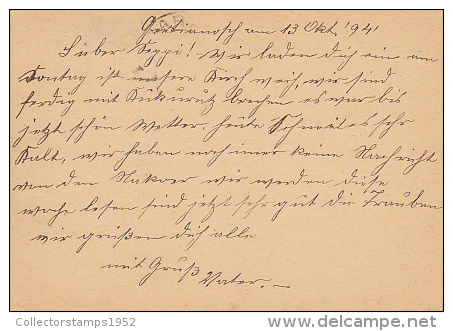 Gertianosch am 13 Okt. '941
Lieber Seppi! Wir laden dich ein am
Sontag ist unsere Kirch weih, wir sind
ferdig mit Kukurutz brechen es war bis
jetzt schön Wetter, heute Schneit es sehr
Kalt, wir haben noch imer keine Nachricht
von den wir werden diese
woche lesen sind jetzt sehr gut die Trauben
wir grüßen dich alle
mit Gruß Vater. —
Collectorstamps1952
delcampe.net